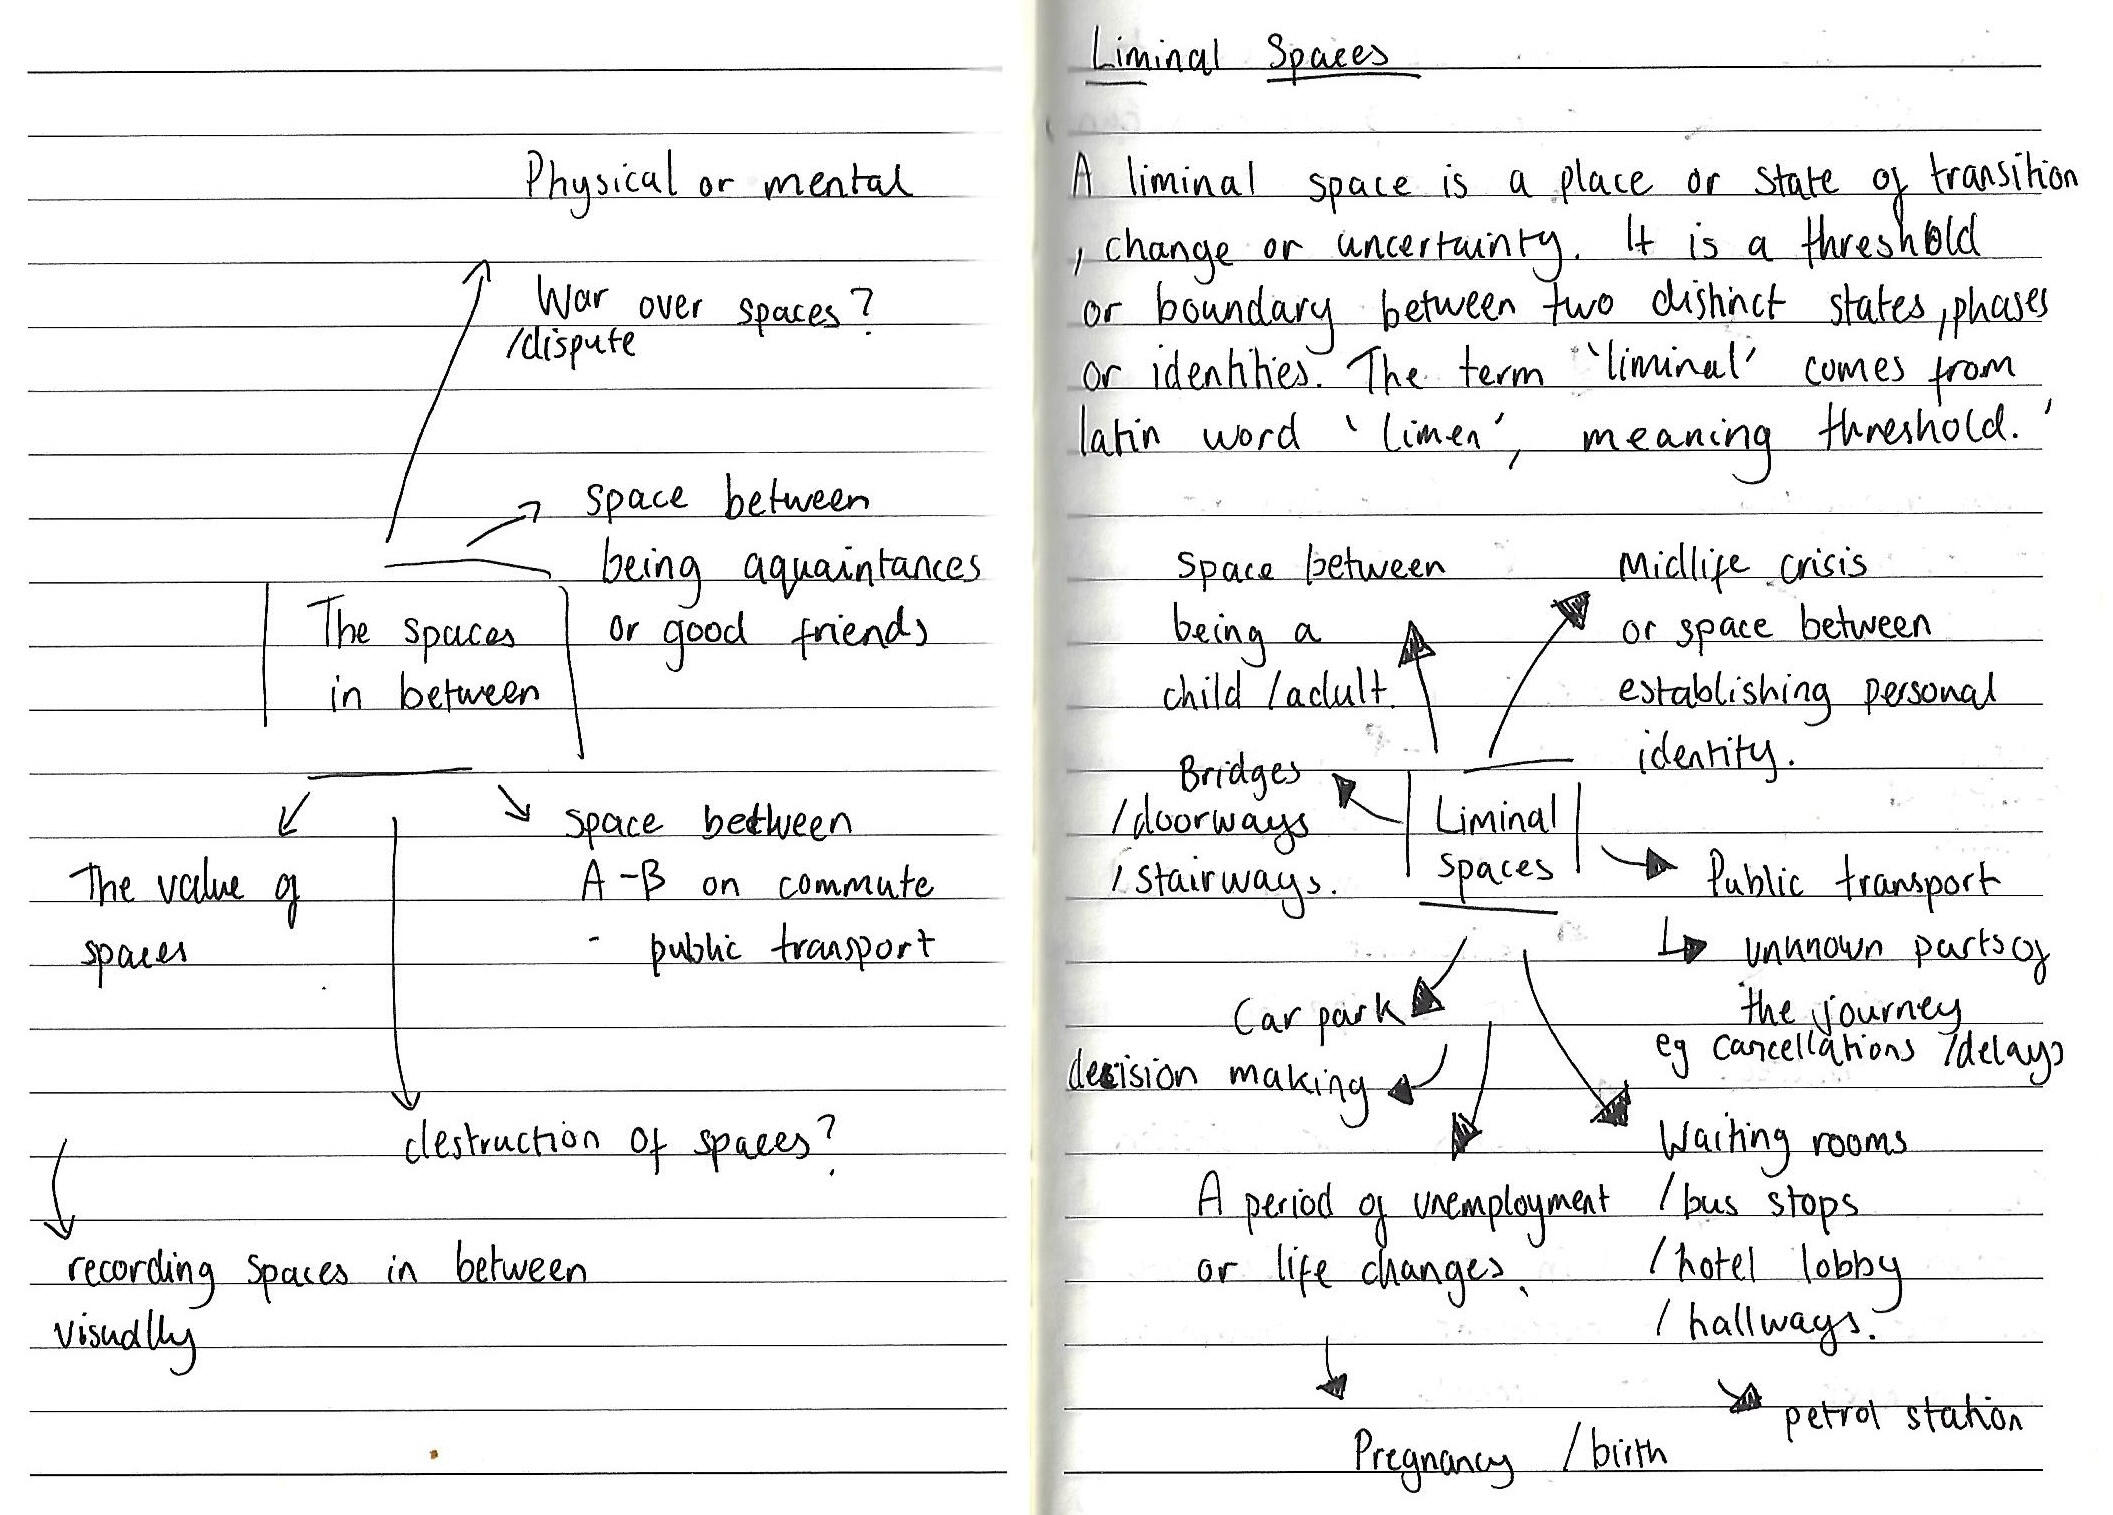 Physical or mental
War over spaces?
/dispute
space between
being aquaintances
or good friends
The spaces
in between
space between
A-B on commute
- public transport
The value of
spaces
destruction of spaces?
recording spaces in between
visually
Liminal Spaces
A liminal space is a place or state of transition
, change or uncertainty. It is a threshold
or boundary between two distinct states, phases
or identities. The term 'liminal' comes from
latin word 'limen', meaning threshold.'
Space between
being a
child /adult.
Midlife crisis
or space between
establishing personal
identity.
Bridges
/doorways
/stairways.
Liminal
spaces
Public transport
unknown parts of
the journey
eg cancellations /delays
Car park
decision making
Waiting rooms
/bus stops
/hotel lobby
/hallways.
A period of unemployment
or life changes.
petrol station
Pregnancy /birth